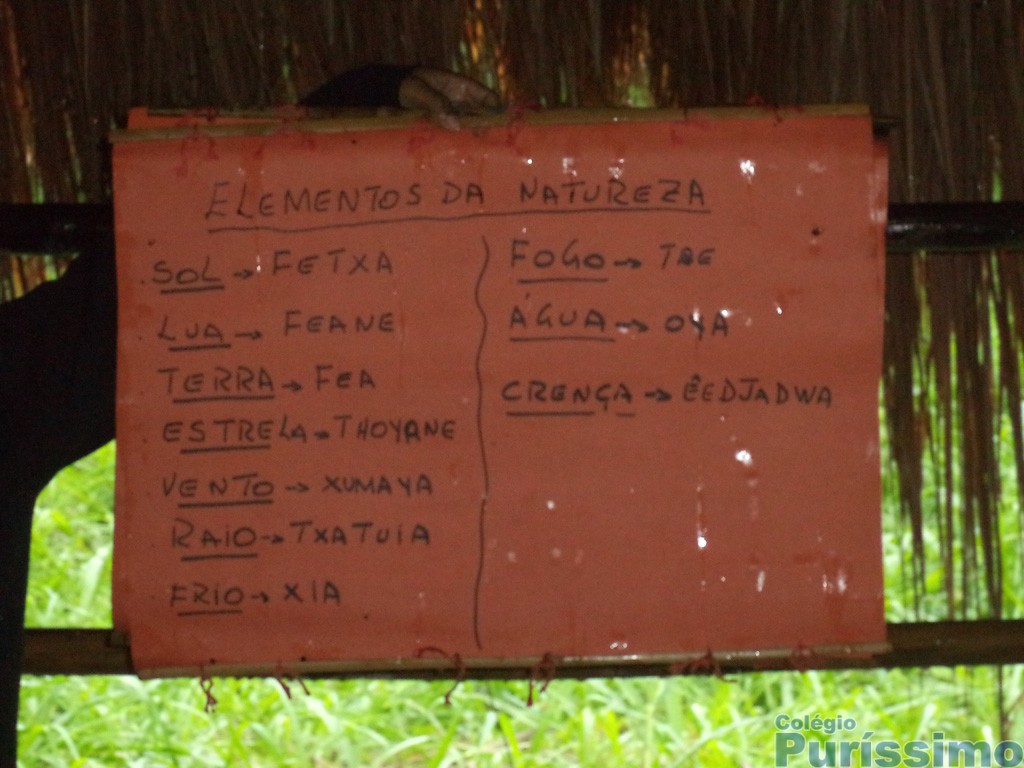 ELEMENTOS DA NATUREZA
SOL → FETXA
LUA → FEANE
TERRA → FEA
ESTRELA → THOYANE
VENTO → XUMAYA
RAIO → TXATUIA
FRIO → XIA
FOGO → TOE
ÁGUA → OYA
CRENÇA → ÊEDJADWA
Colégio
Puríssimo